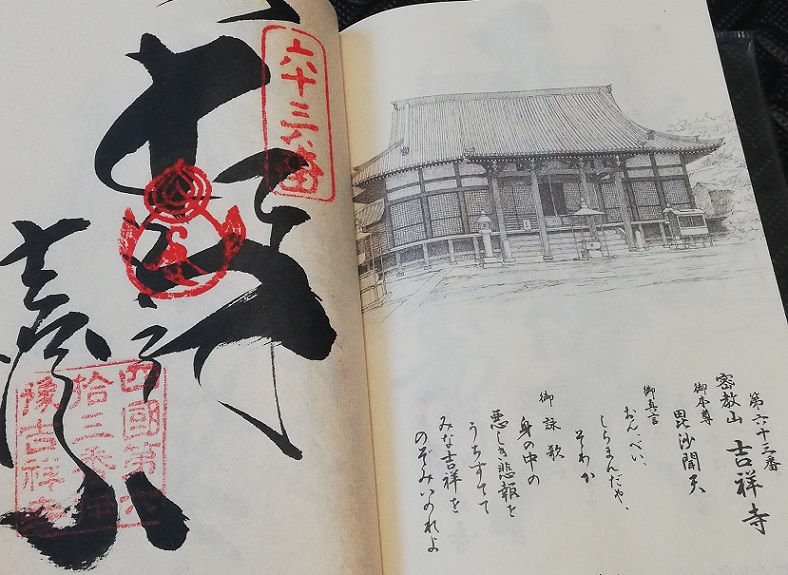 第六十三番
密教山 吉祥寺
御本尊
毘沙聞天
御真言
おんべい、
しらまんだや、
そわか
御詠歌
身の中の
悪しき悲報を
うちすてて
みな吉祥を
のぞみいのれよ
六十三番
四國第六
拾三番伊
豫吉祥寺